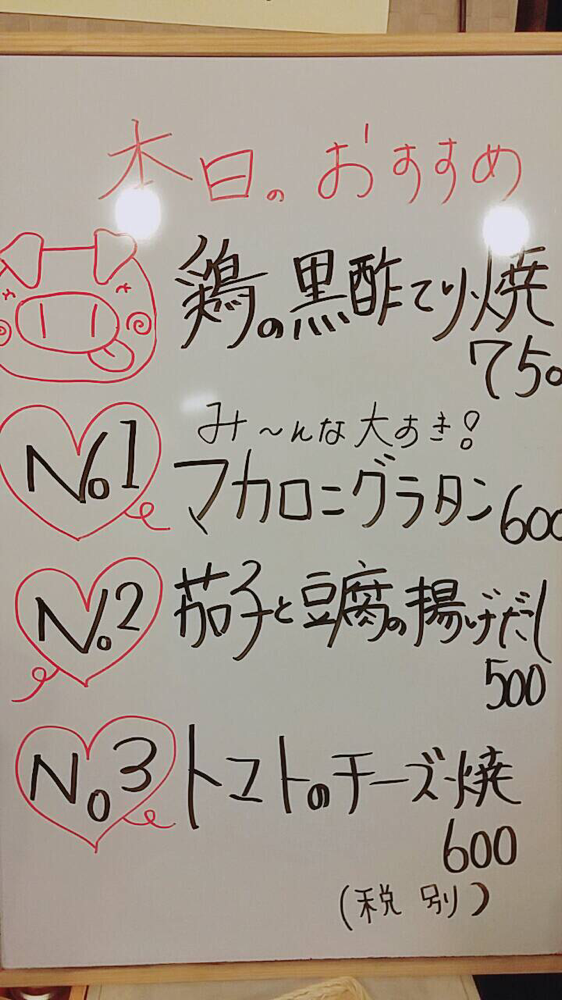 本日のおすすめ
鶏の黒酢てり焼
750
No.1
み〜んな大すき!
マカロニグラタン 600
No.2
茄子と豆腐の揚げだし
500
No.3
トマトのチーズ焼
600
(税別)